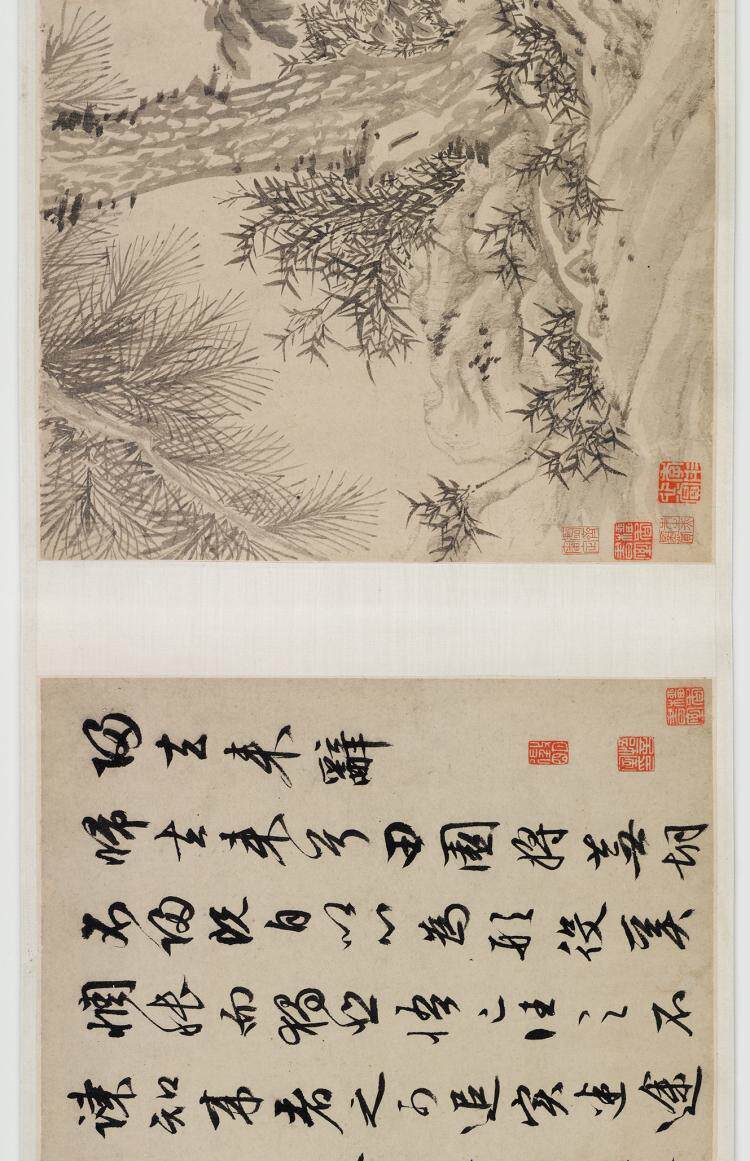 歸去來辭
歸去來兮田園將蕪胡
不歸既自以心為形役奚
惆悵而獨悲悟已往之不
諫知來者之可追實迷途